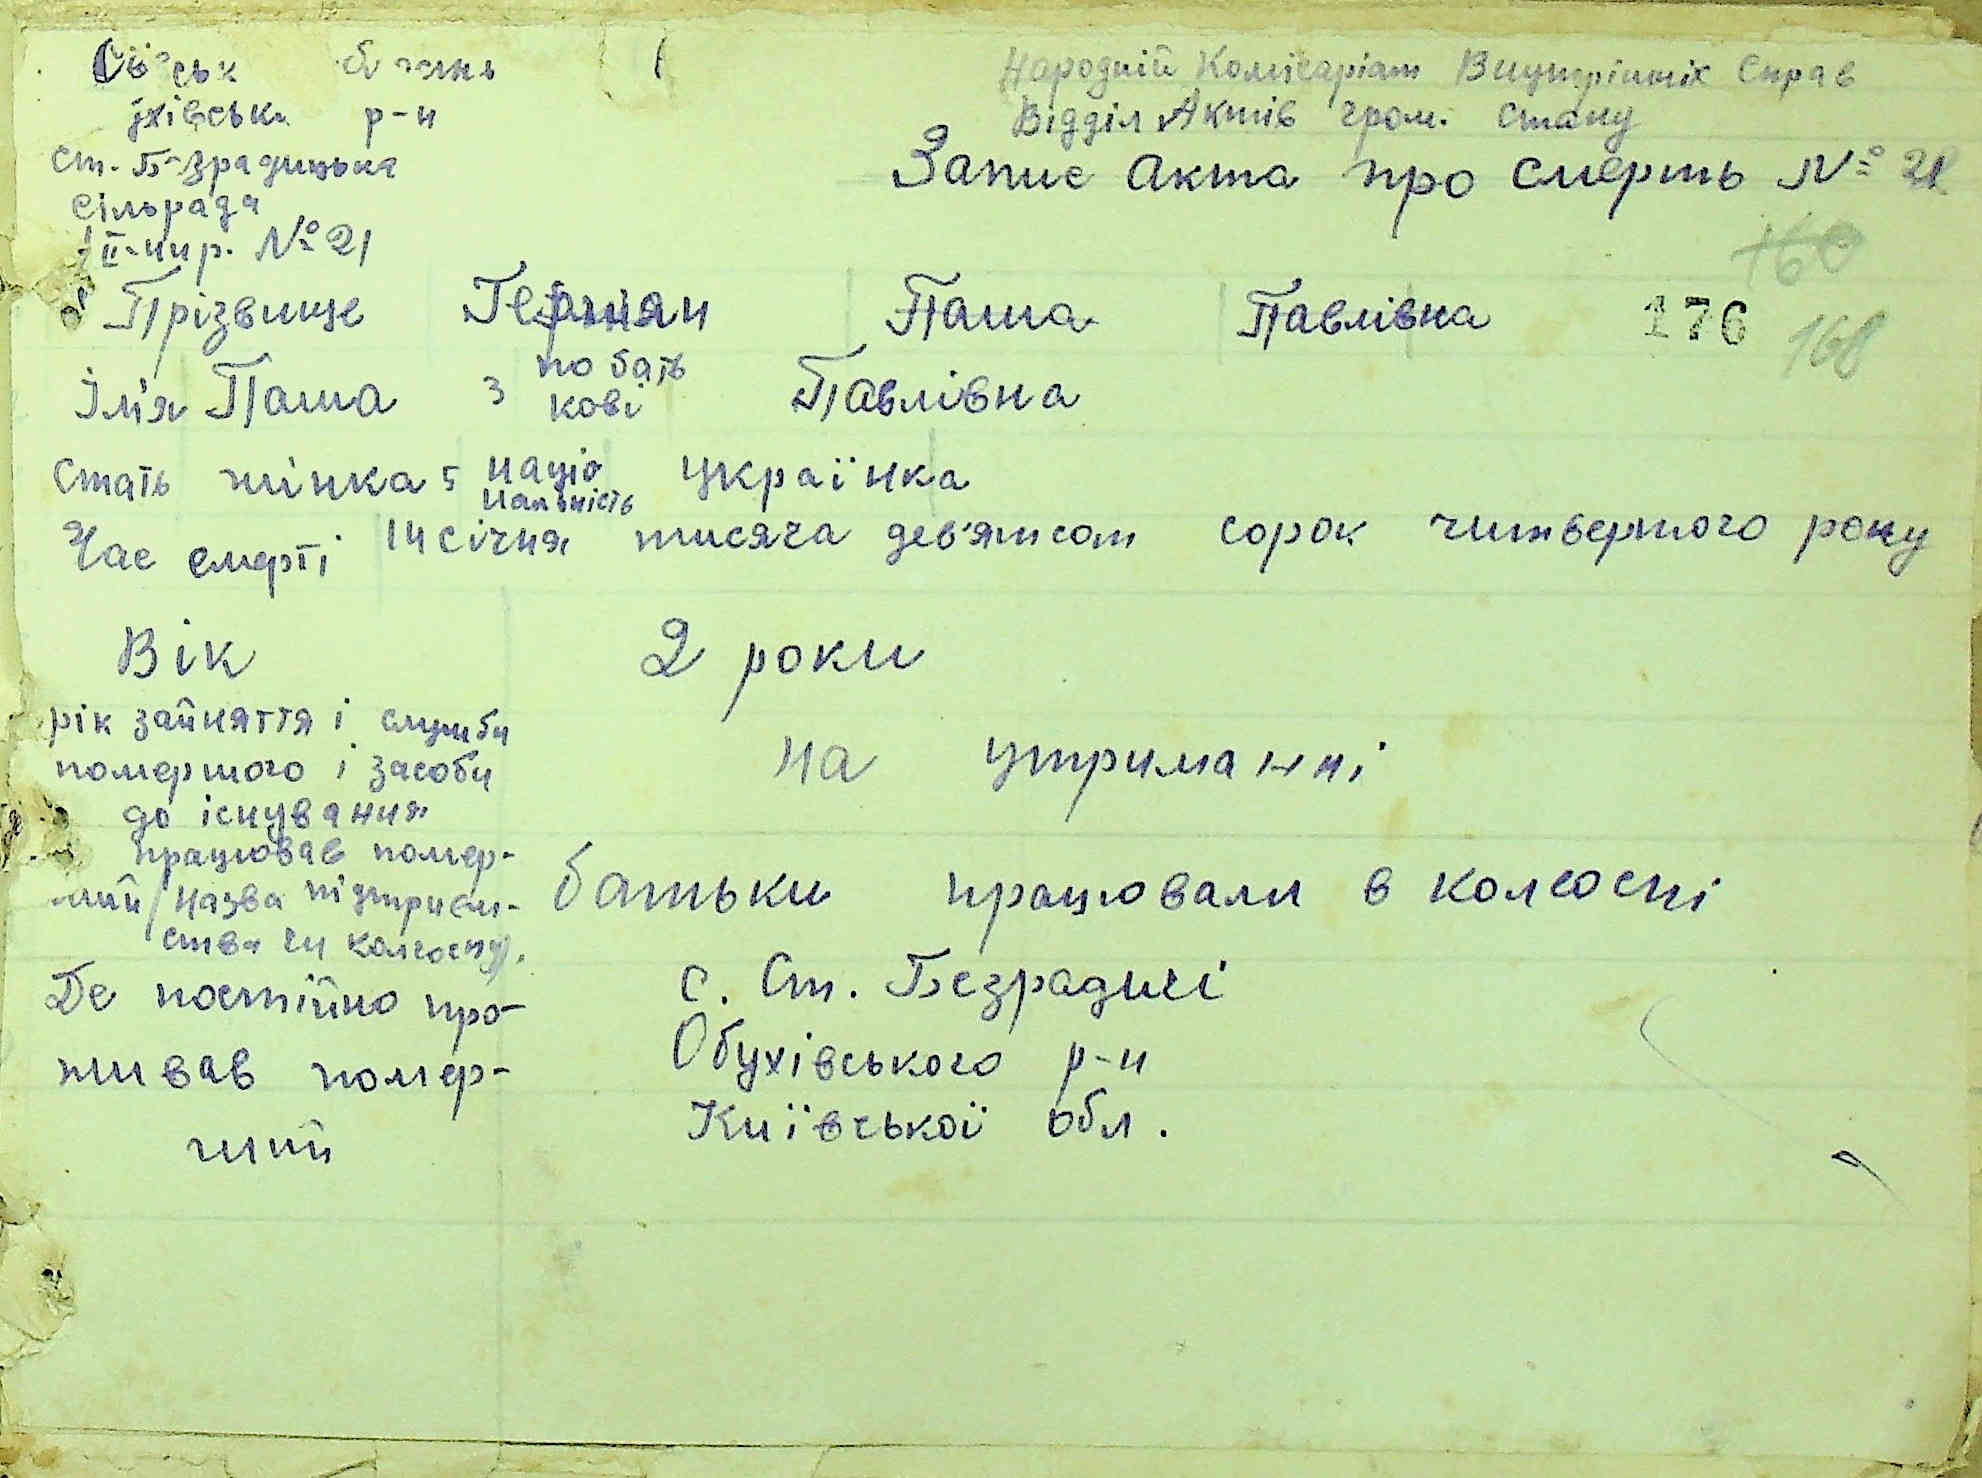 р-н
Ст. Безрадицька
сільрада
ІІ-пир. № 21
Народній Комісаріат Внутрішніх Справ
Відділ Актів гром. стану
Запис Акта про смерть № 21
160
Прізвище Герман Паша Павлівна 176 168
Ім'я Паша 3 по бать
кові Павлівна
Стать жінка 5 націо
нальність українка
Час смерті 14 січня тисяча дев'ятсот сорок читвертого року
Вік 2 роки
рік зайняття і служби
помершого і засоби
до існування
на утриманні
працював помер-
ший /назва підприєм-
ства чи колгоспу).
батьки працювали в колгоспі
Де постійно про-
живав помер-
ший
с. Ст. Безрадичі
Обухівського р-н
Київської обл.